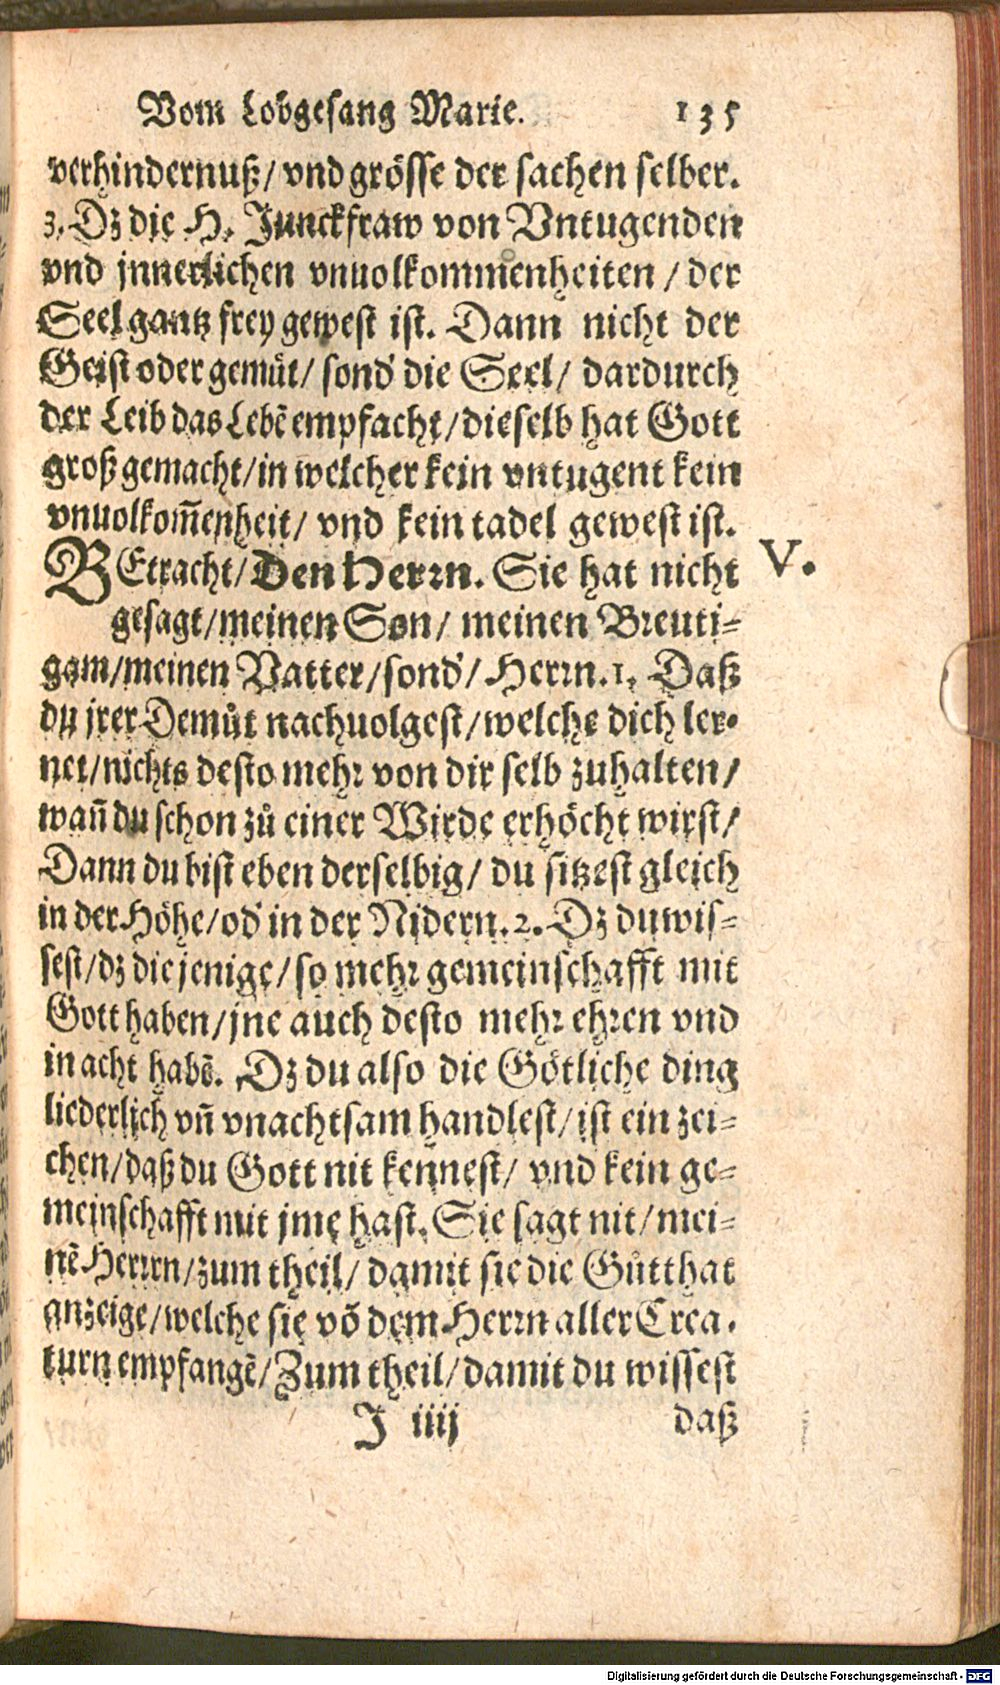 Vom Lobgesang Marie. 135
verhindernuß/ vnd grösse der sachen selber.
3. Dz die H. Junckfraw von Vntugenden
vnd jnnerlichen vnuolkommenheiten / der
Seel gantz frey gewest ist. Dann nicht der
Geist oder gemüt/ sond' die Seel/ dardurch
der Leib das Lebē empfacht/ dieselb hat Gott
groß gemacht/ in welcher kein vntugent kein
vnuolkom̄enheit/ vnd kein tadel gewest ist.
BEtracht/ Den Herrn. Sie hat nicht
V.
gesagt/ meinen Son/ meinen Breuti-
gam/ meinen Vatter/ sond'/ Herrn. 1. Daß
du jrer Demůt nachuolgest/ welche dich ler-
net/ nichts desto mehr von dir selb zuhalten/
wan̄ du schon zů einer Wirde erhöcht wirst/
Dann du bist eben derselbig/ du sitzest gleich
in der Höhe/ od' in der Nidern. 2. Dz du wis-
sest/ dz die jenige/ so mehr gemeinschafft mit
Gott haben/ jne auch desto mehr ehren vnd
in acht habē. Dz du also die Götliche ding
liederlich vn̄ vnachtsam handlest/ ist ein zei-
chen/ daß du Gott nit kennest/ vnd kein ge-
meinschafft mit jme hast. Sie sagt nit/ mei-
nē Herrrn/ zum theil/ damit sie die Gůtthat
anzeige/ welche sie vō dem Herrn aller Crea-
turn empfangē/ Zum theil/ damit du wissest
J iiij daß
Digitalisierung gefördert durch die Deutsche Forschungsgemeinschaft - DFG